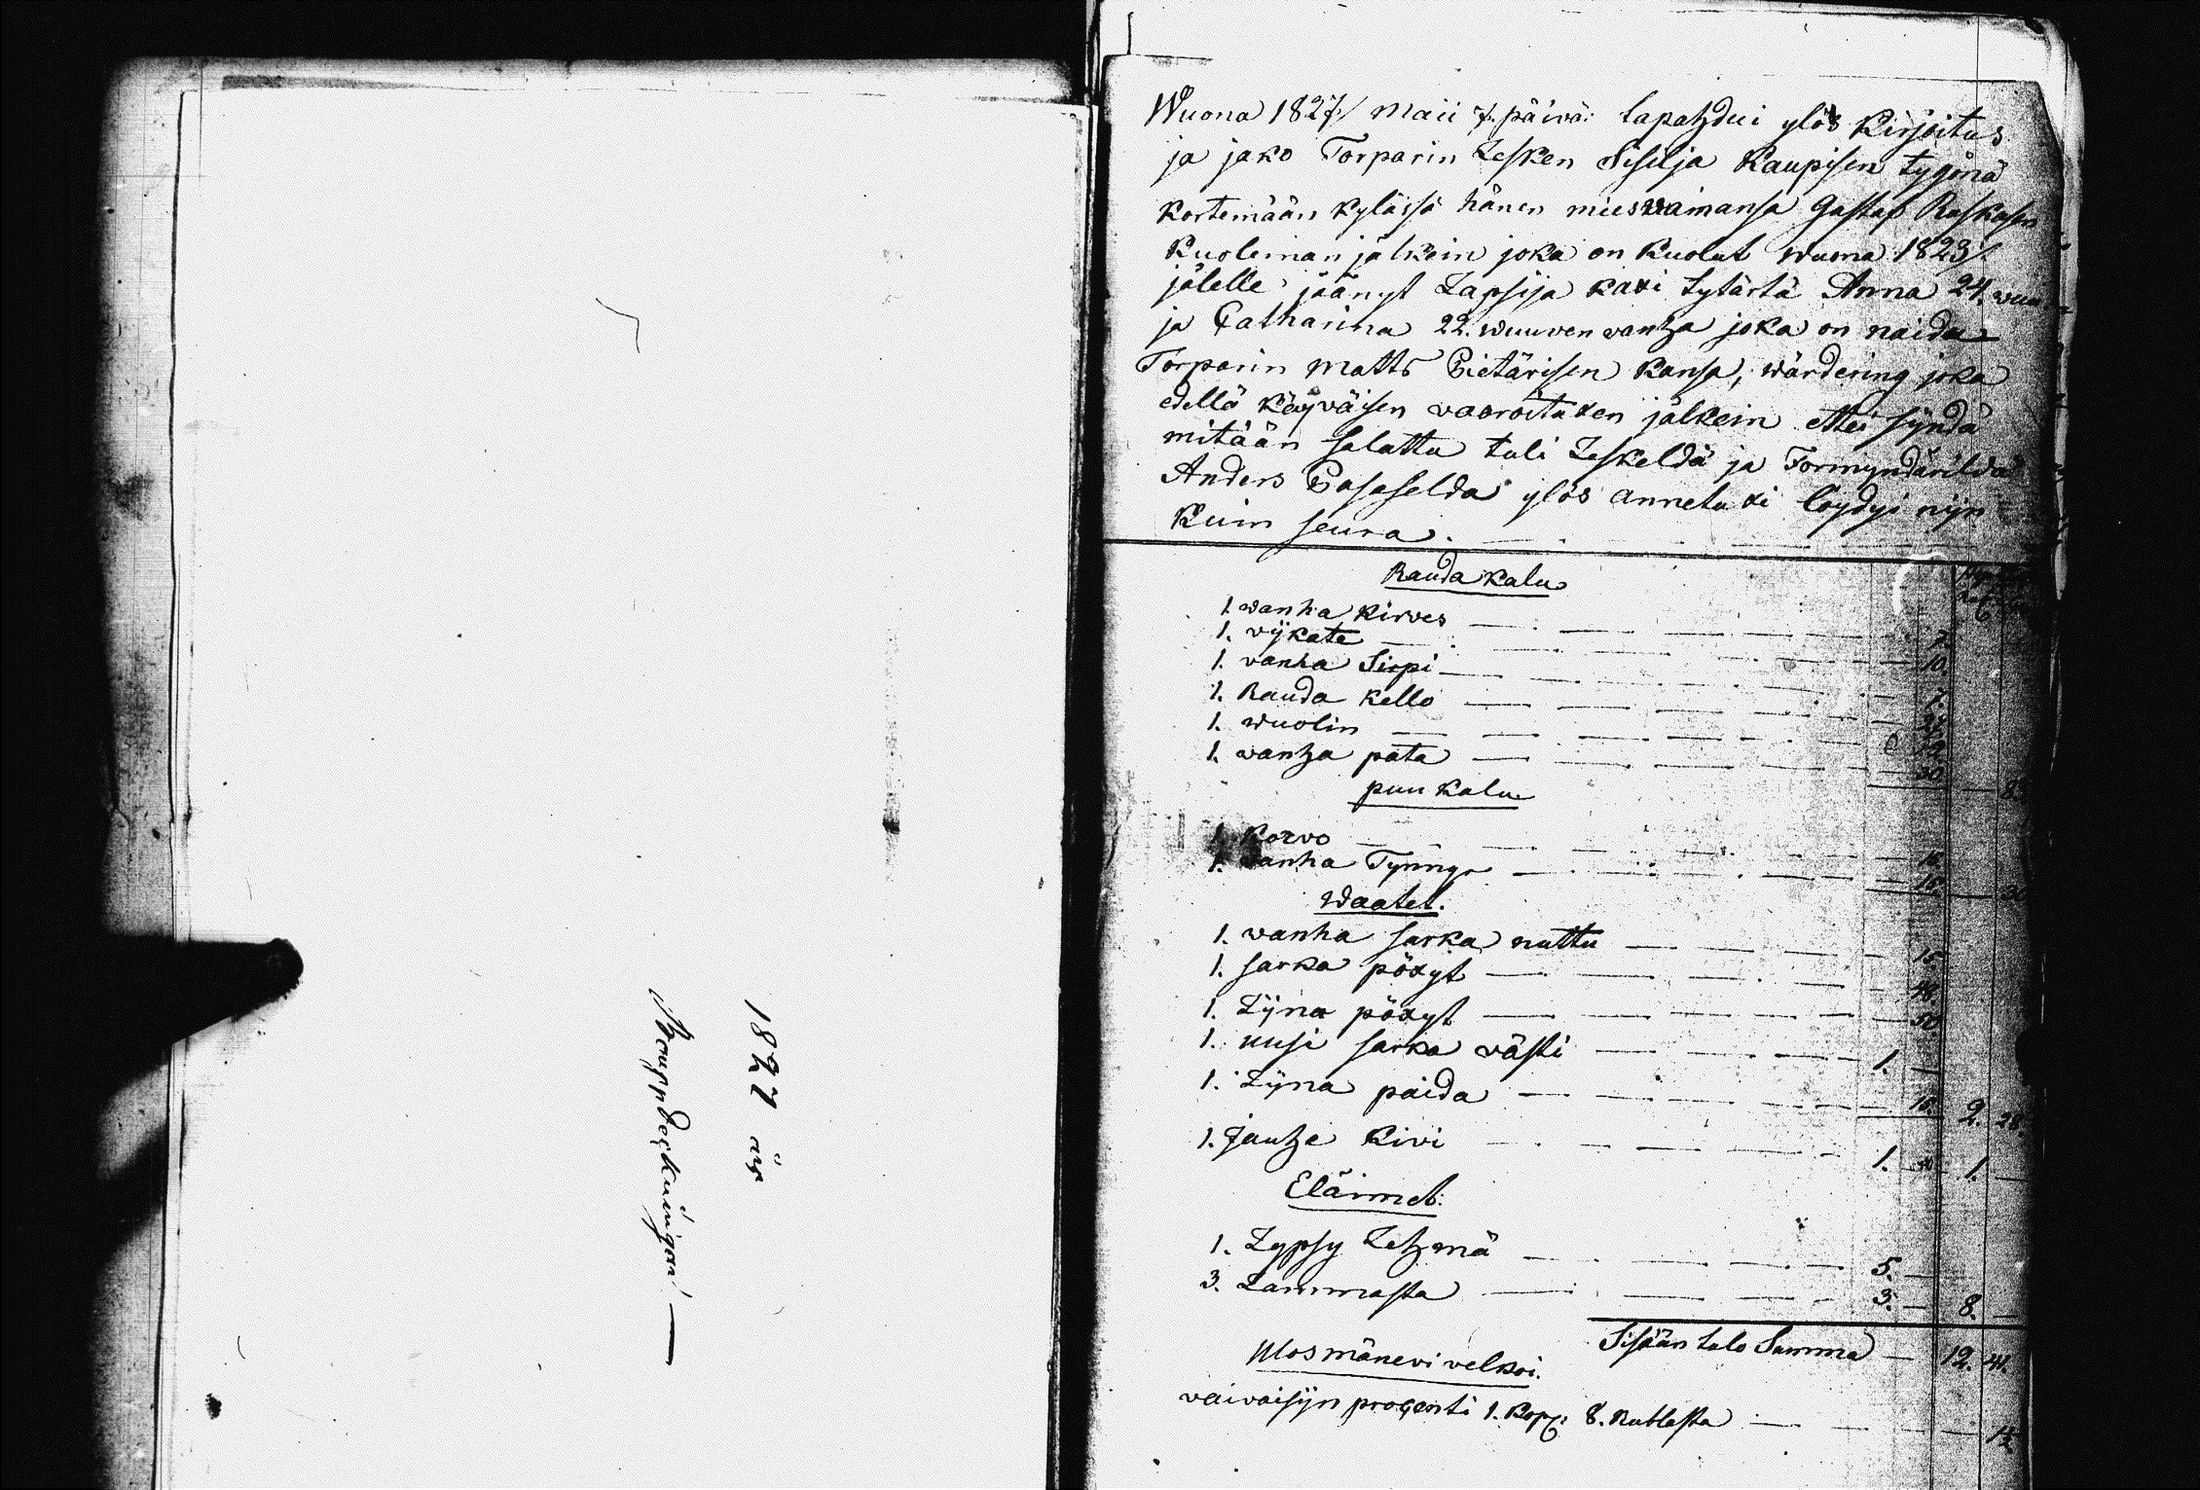 1827 års
Bouppteckningar
Wuona 1827/ Maii 7. päivä: tapahdui ylös kirjoitus
ja jako Torparin Lesken Sisilja Kaupisen tygönä
kortemään kylässä hänen miesvainansa Gustaf Raskasen
kuoleman jälkein joka on kuolut wuona 1823/.
jälelle jäänyt Lapsija kaxi tytärtä Anna 24. wuu
ja Catharina 22. wuuven vanha joka on naidu
Torparin Matts Pietärisen kansa, wärdering joka
edellä käyväisen varoituxen jälkein ettei syndä
mitään salattu tuli Leskeldä ja Formyndärildä
Anders Pasaselda ylös annetuxi löydyi nijn
kuin seura.
Rauda kalu
1. wanha kirves 7.
1. vijkate 10.
1. vanha Sirpi 7.
1. Rauda kello
1. wuolin 12
1. wanha pata 30
puu kalu
1. Korvo 15.
1. vanha Tynnyr 15. 30
Waatet.
1. wanha sarka nuttu 15.
1. sarka pöxyt 48.
1. Lijna pöxyt 50.
1. uusi sarka västi 1. —
1. Lijna paida 15. 2. 28.
1. Jauho kivi 1. 1. —
Eläimet:
1. Lypsy Lehmä 5. —
3. Lammasta 3. — 8. —
Sisään tulo Summa 12. 41.
Ulosmänevi velkoi.
vaivaisijn procenti 1. Kop: 8. Rublasta 1½